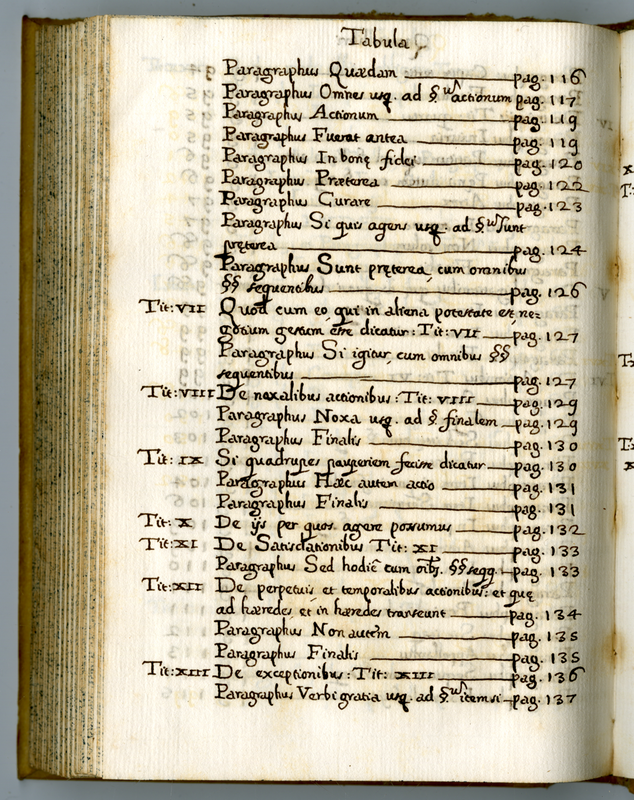 Tabula
Paragraphus Quædam pag. 116
Paragraphus Omnes usq. ad §.um actionum pag. 117
Paragraphus Actionum pag. 119
Paragraphus Fuerat antea pag. 119
Paragraphus In bonę fidei pag. 120
Paragraphus Præterea pag. 122
Paragraphus Curare pag. 123
Paragraphus Si quis agens usq. ad §.um Sunt
pręterea pag. 124
Paragraphus Sunt pręterea, cum omnibus
§§ sequentibus pag. 126
Tit: VII Quod cum eo, qui in aliena potestate est, ne=
gotium gestum esse dicatur: Tit: VII pag. 127
Paragraphus Si igitur, cum omnibus §§
sequentibus pag. 127
Tit: VIII De noxalibus actionibus: Tit: VIII pag. 129
Paragraphus Noxa usq. ad §. finalem pag. 129
Paragraphus Finalis pag. 130
Tit: IX Si quadrupes pauperiem fecisse dicatur pag. 130
Paragraphus Hæc autem actio pag. 131
Paragraphus Finalis pag. 131
Tit: X De ijs per quos agere possumus pag. 132
Tit: XI De Satisdationibus Tit: XI pag. 133
Paragraphus Sed hodiè cum oïbs. §§ seqq. pag. 133
Tit: XII De perpetuis et temporalibus actionibus: et quę
ad hæredes et in hæredes transeunt pag. 134
Paragraphus Non autem pag. 135
Paragraphus Finalis pag. 135
Tit: XIII De exceptionibus: Tit: XIII pag. 136
Paragraphus Verbi gratia usq. ad §.um item si pag. 137